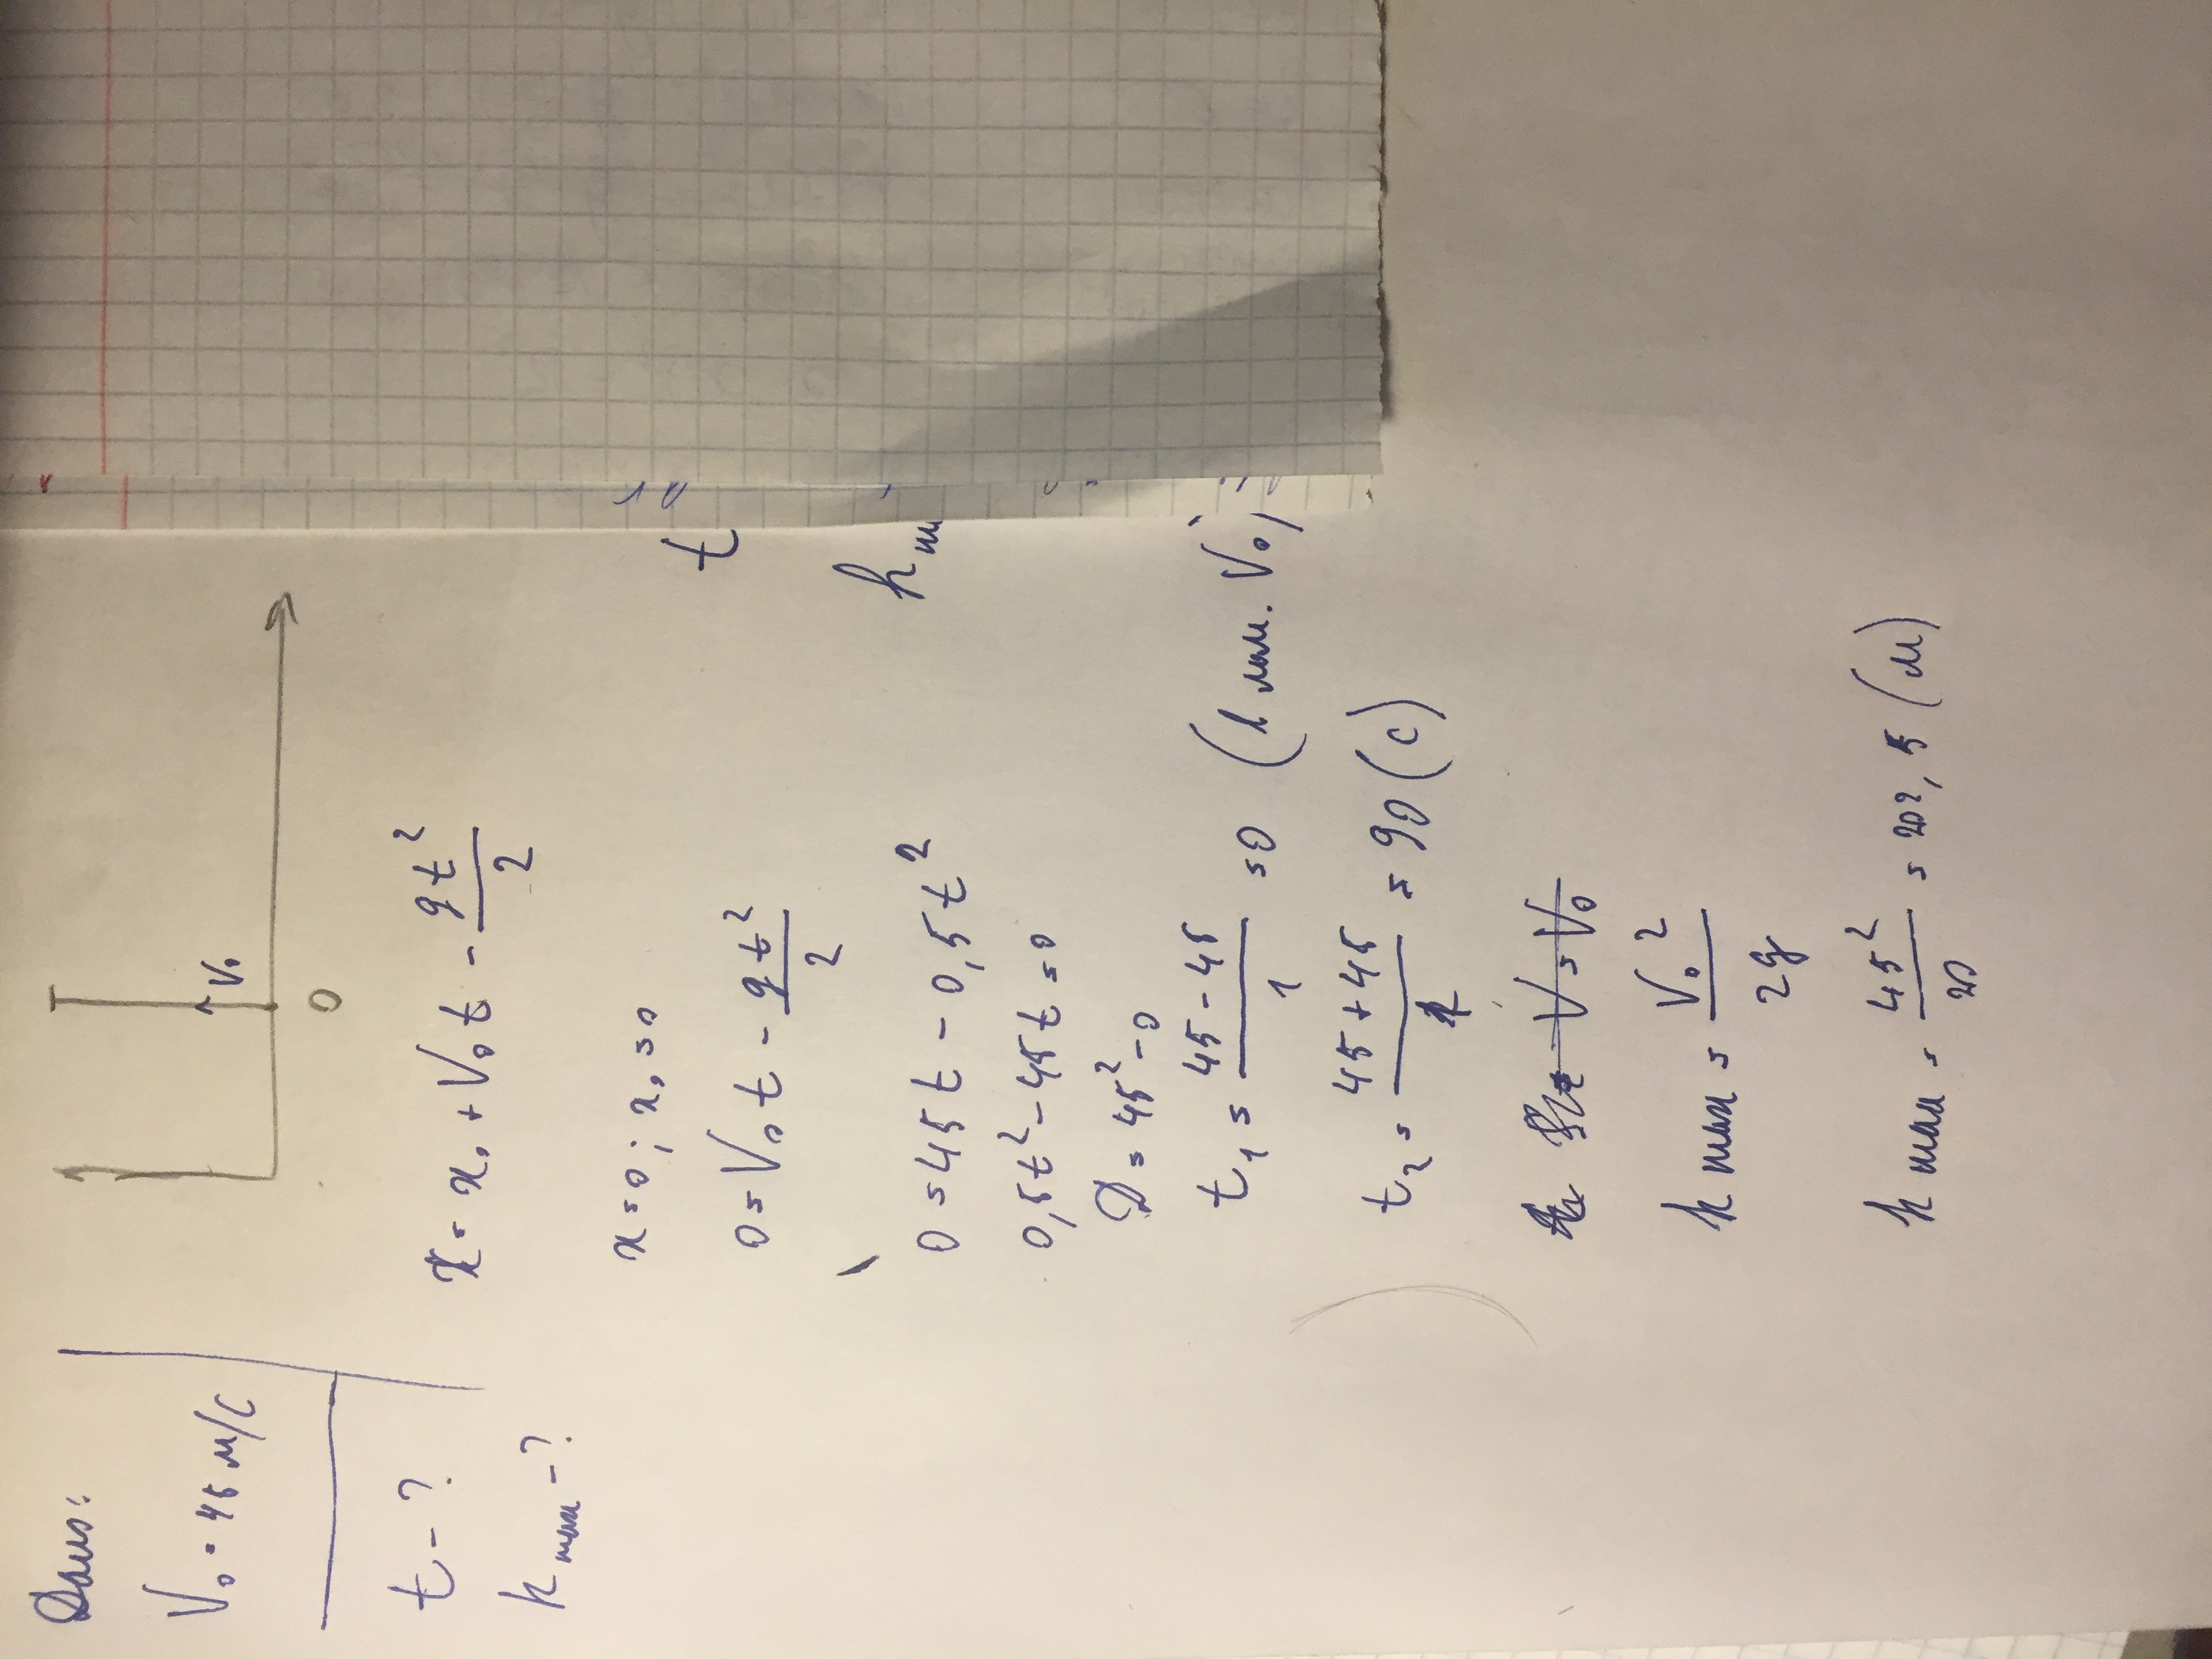 Дано:
V₀ = 45 м/с
t - ?
h max - ?
V₀
0
x = x₀ + V₀t - gt²/2
x = 0; x₀ = 0
0 = V₀t - gt²/2
t
h m
0 = 45t - 0,5t²
0,5t² - 45t = 0
D = 45² - 0
t₁ = (45 - 45)/1 = 0 ( V₀,
t₂ = (45 + 45)/1 = 90 (с)
V = V₀
h max = V₀²/2g
h max = 45²/20 = 202,5 (м)